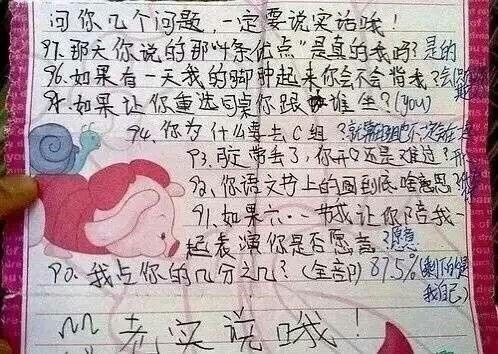 问你几个问题，一定要说实话哦！
97.那天你说的那"4条优点"是真的我吗？是的
96.如果有一天我的脚肿起来你会不会背我？会
95.如果让你重选同桌你跟谁坐？(you)
94.你为什么要去C组？就算班里不
93.我定带丢了，你开心还是难过？
92.你语文书上的画到底啥意思？
91.如果六·一节我让你陪我一
起表演你是否愿意？愿意
90.我占你的几分之几？(全部) 87.5%(剩下的是
我自己)
老实说哦！